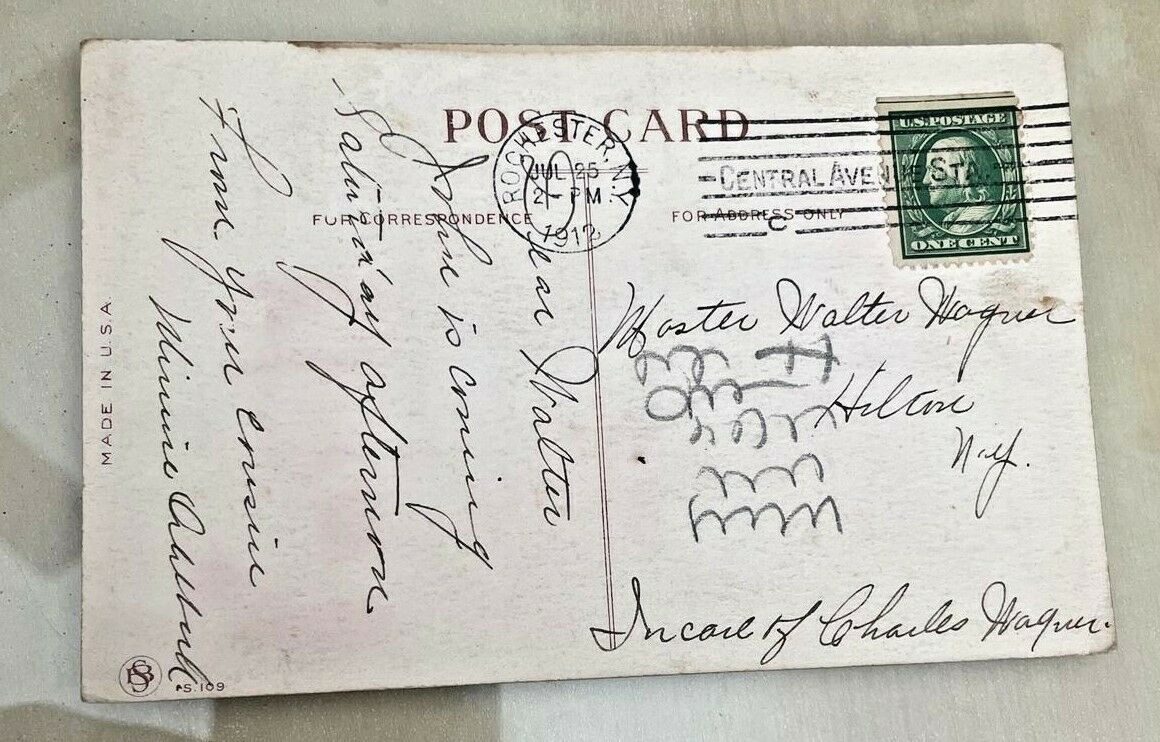 POST CARD
ROCHESTER, N.Y.
JUL 25
2 - PM
1912
CENTRAL AVENUE STA.
C
U.S. POSTAGE
ONE CENT
FOR CORRESPONDENCE
FOR ADDRESS ONLY
Dear Walter
John is coming
Saturday afternoon
From your cousin
Minnie
Master Walter Wagner
Hilton
N.Y.
In care of Charles Wagner.
MADE IN U.S.A
S. 109